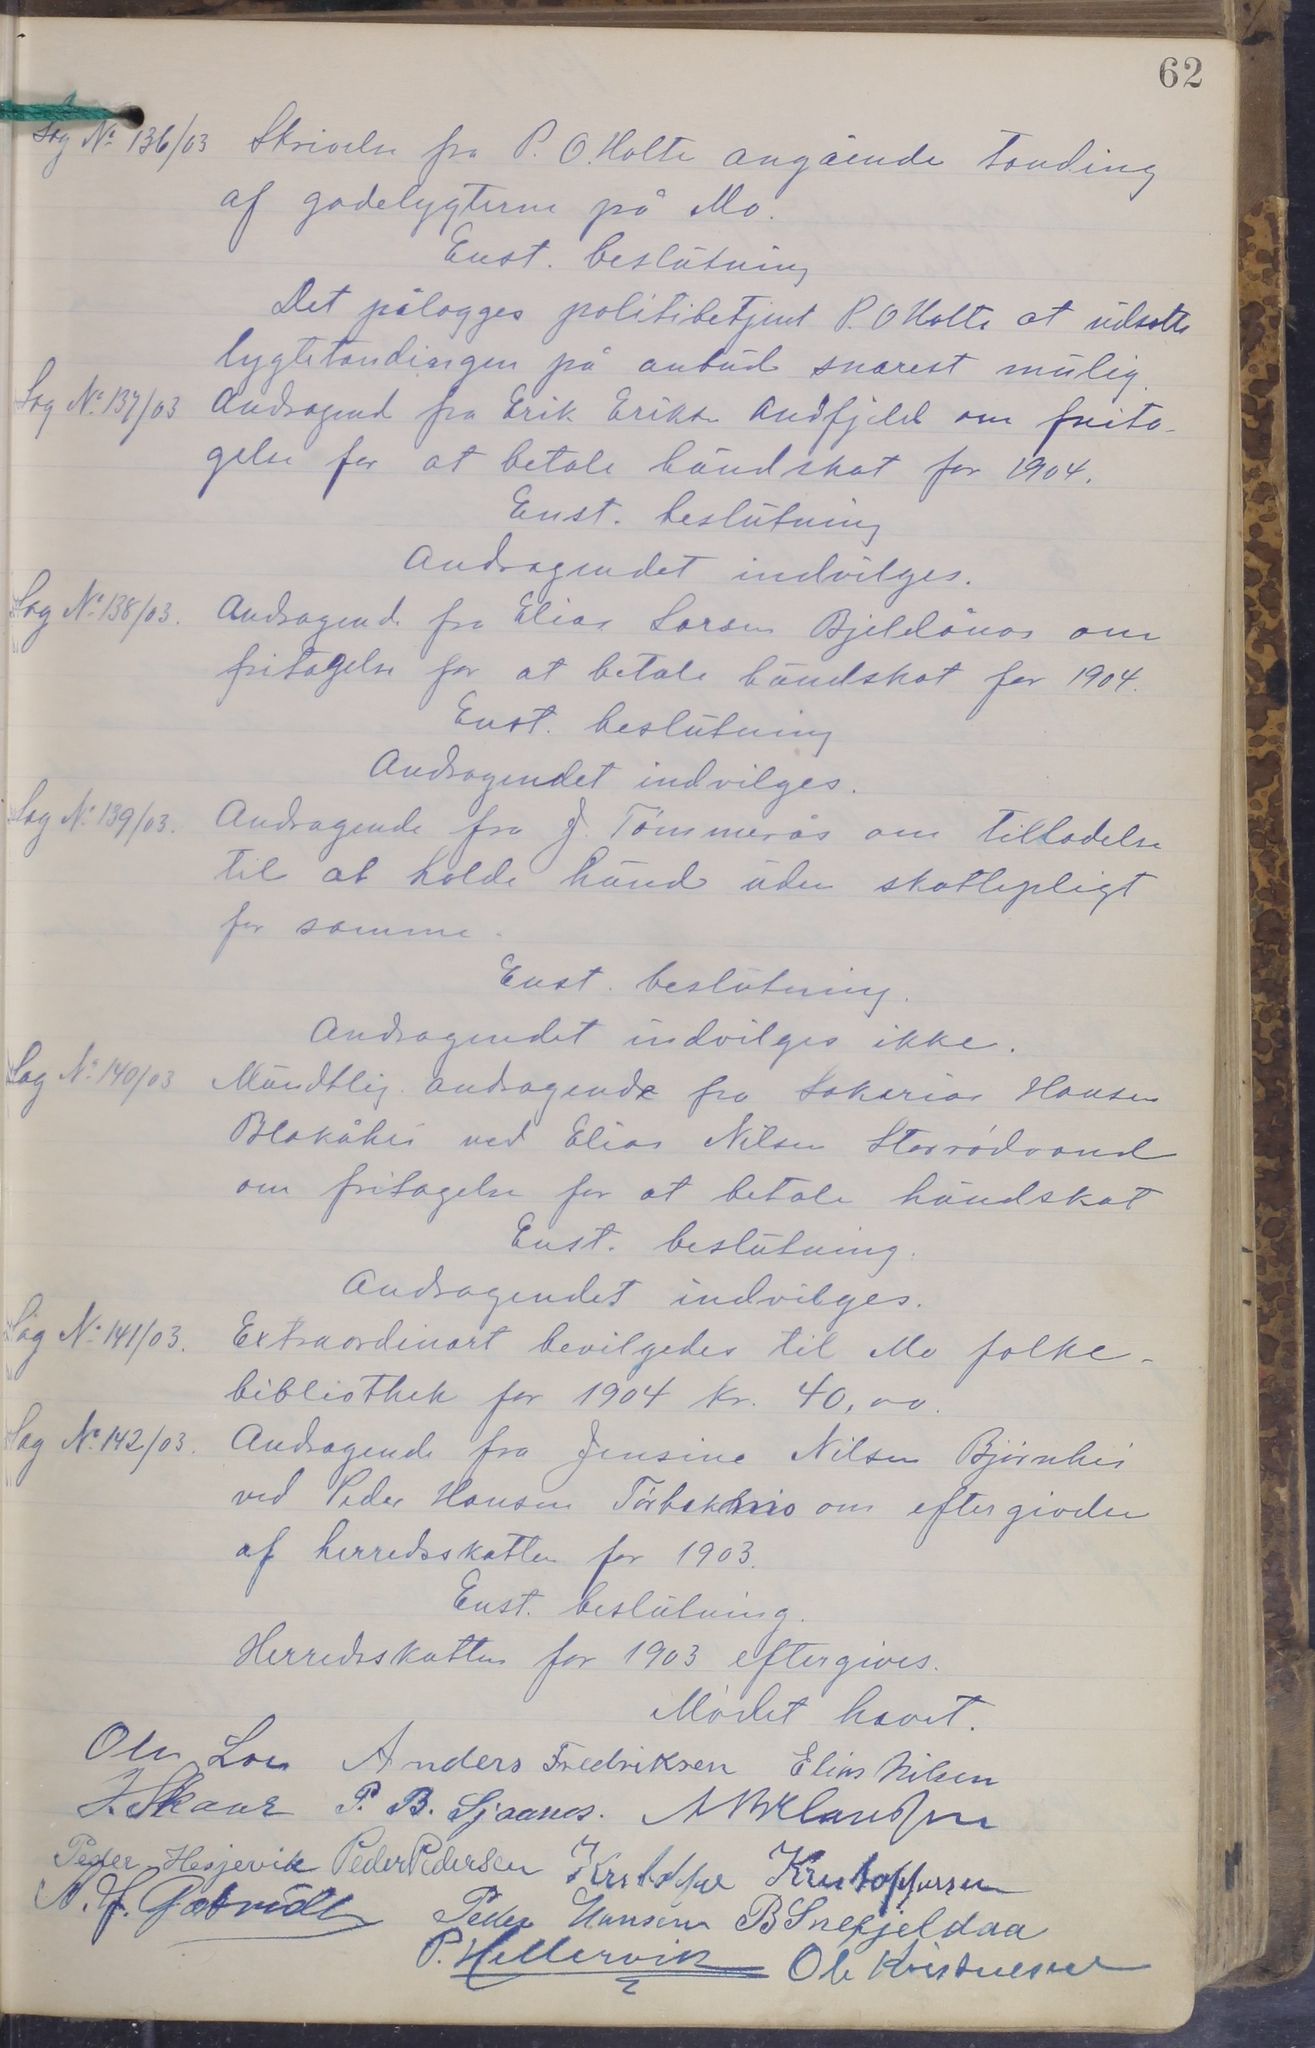 62
Sag No 136/03 Skrivelse fra P. O. Holte angående tænding
af gadelygterne på Mo.
Enst. beslutning
Det pålægges politibetjent P. O Holte at udsætte
lygtetændingen på anbud snarest mulig.
Sag No 137/03 Andragend fra Erik Eriksen Andfjeld om frita-
gelse for at betale hundskat for 1904.
Enst. beslutning
Andragendet indvilges.
Sag No 138/03. Andragend fra Elias Larsen Bjeldånes om
fritagelse for at betale hundskat for 1904.
Enst. beslutning
Andragendet indvilges.
Sag No 139/03. Andragende fra J. Tömmerås om tilladelse
til at holde hund uden skattepligt
for samme.
Enst. beslutning.
Andragendet indvilges ikke.
Sag No 140/03 Mundtlig andragende fra Sakarias Hansen
Blakåhei ved Elias Nilsen Storrødvand
om fritagelse for at betale hundskat
Enst. beslutning.
Andragendet indvilges.
Sag No 141/03. Extraordinært bevilgedes til Mo folke-
bibliothek for 1904 kr. 40,00.
Sag No 142/03. Andragende fra Jensine Nilsen Bjørnhei
ved Peder Hansen om eftergivelse
af herredsskatten for 1903.
Enst. beslutning.
Herredsskatten for 1903 eftergives.
Mødet hævet.
Ole Lou Anders Fredriksen Elias Nilsen
J. Skaar P. B. Sjaanes.
Peder Hesjevik Peder Pedersen Kristoffer Kristoffersen
Peder Hansen B Snefjeldaa
P. Hellervik Ole Kristensen